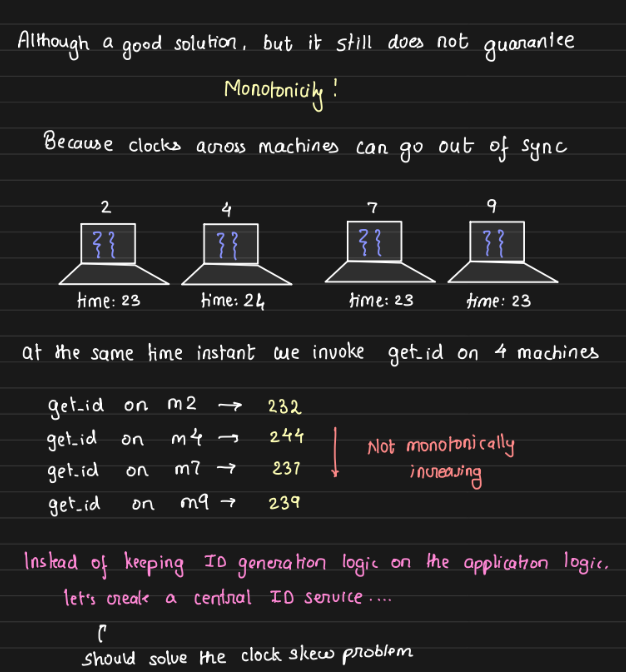 Although a good solution, but it still does not guarantee
Monotonicity!
Because clocks across machines can go out of sync
2 4 7 9
time: 23 time: 24 time: 23 time: 23
at the same time instant we invoke get_id on 4 machines
get_id on m2 → 232
get_id on m4 → 244
get_id on m7 → 237
get_id on m9 → 239
Not monotonically
increasing
Instead of keeping ID generation logic on the application logic,
let's create a central ID service....
Should solve the clock skew problem